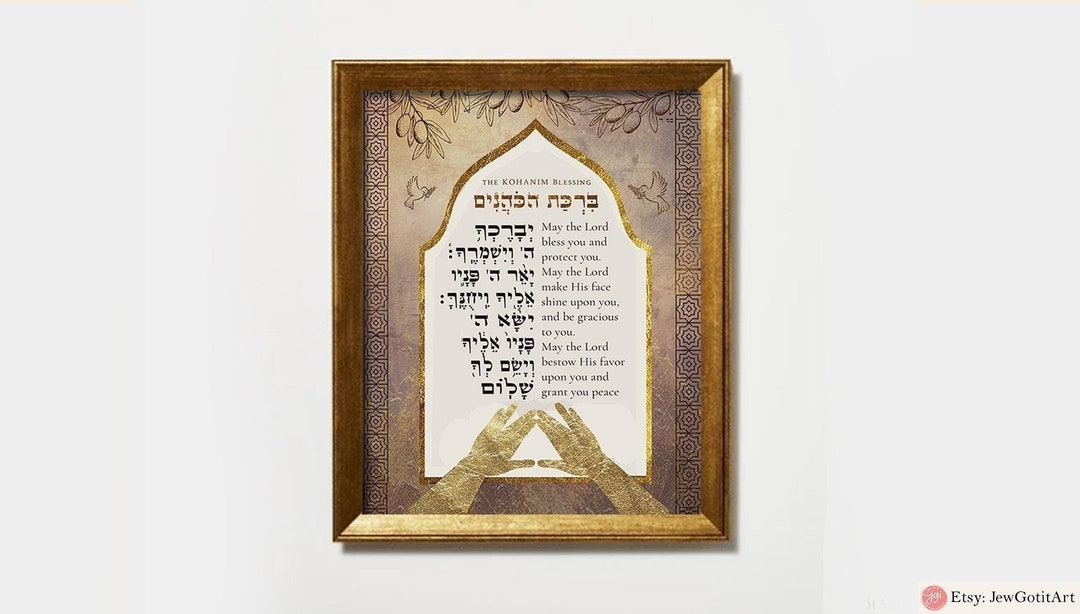 THE KOHANIM BLESSING
בִּרְכַּת הַכֹּהֲנִים
יְבָרֶכְךָ֥
ה' וְיִשְׁמְרֶֽךָ׃
יָאֵ֨ר ה' פָּנָ֛יו
אֵלֶ֖יךָ וִֽיחֻנֶּֽךָּ׃
יִשָּׂ֨א ה'
פָּנָיו֙ אֵלֶ֔יךָ
וְיָשֵׂ֥ם לְךָ֖
שָׁלֽוֹם
May the Lord
bless you and
protect you.
May the Lord
make His face
shine upon you,
and be gracious
to you.
May the Lord
bestow His favor
upon you and
grant you peace
jgi
Etsy: JewGotitArt